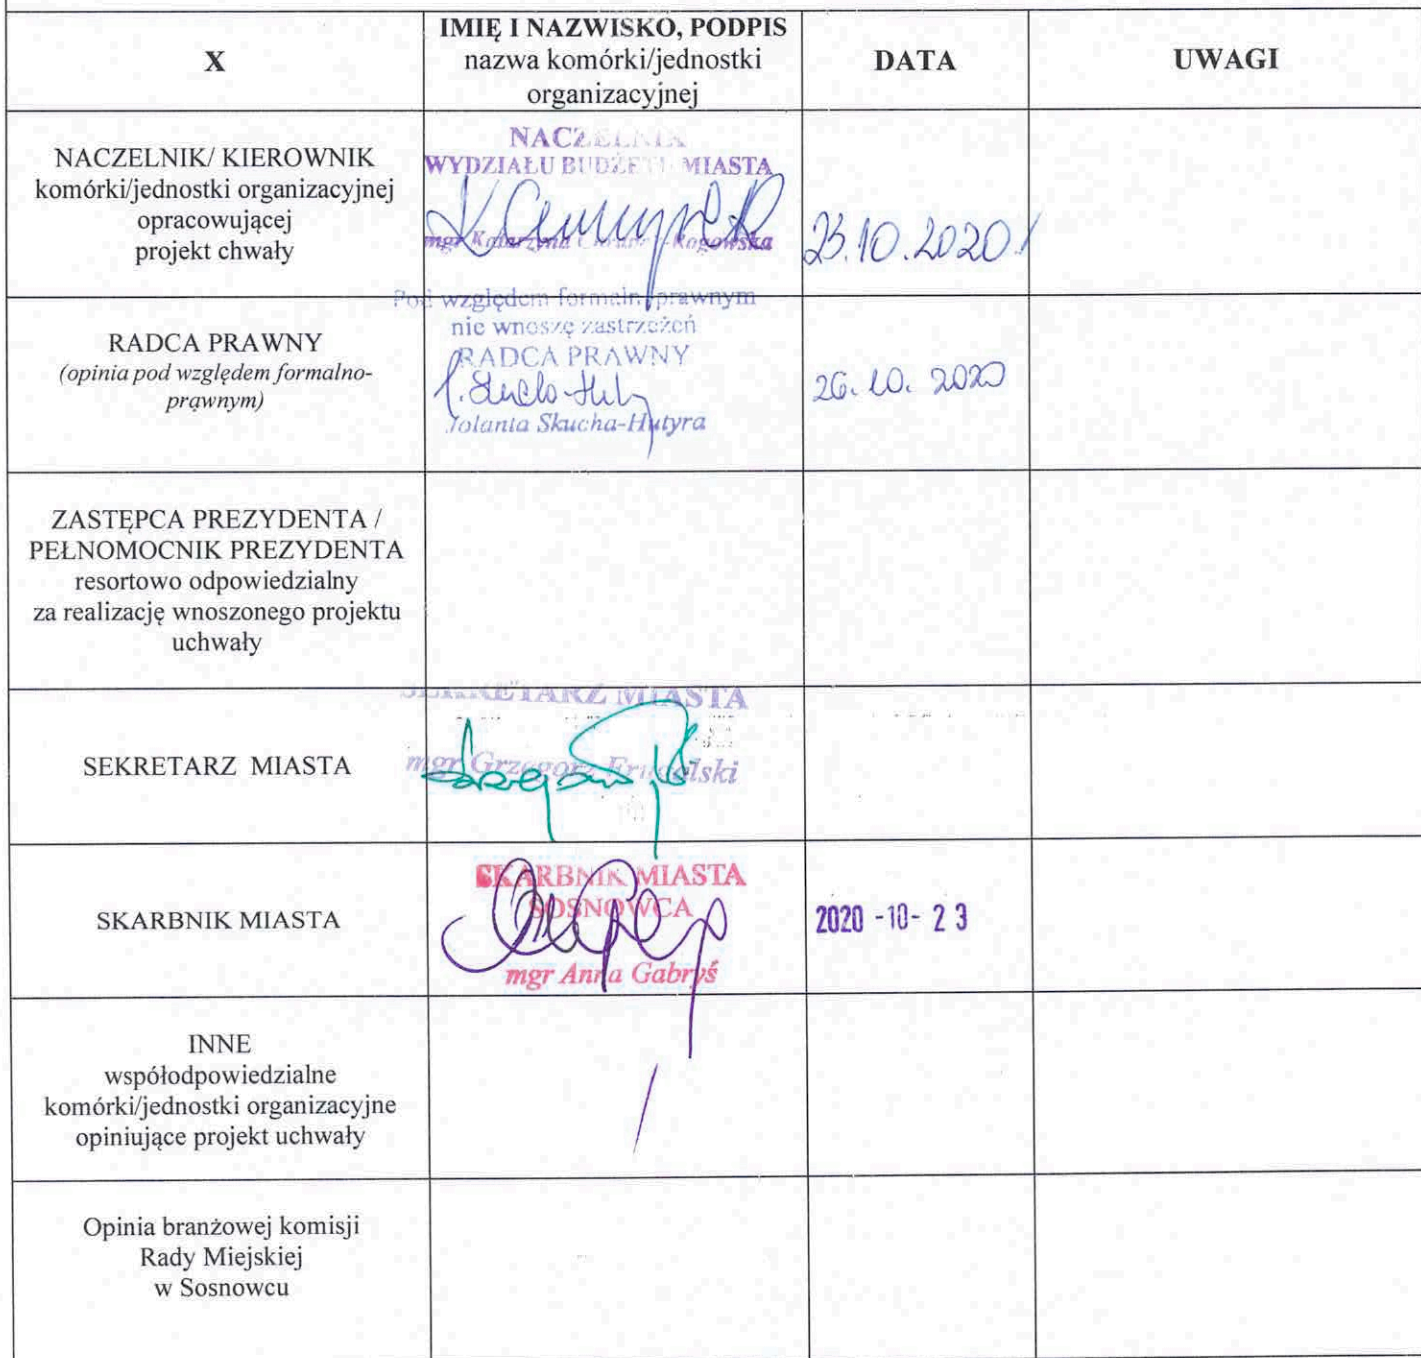 X
IMIĘ I NAZWISKO, PODPIS
nazwa komórki/jednostki
organizacyjnej
DATA
UWAGI
NACZELNIK/ KIEROWNIK
komórki/jednostki organizacyjnej
opracowującej
projekt chwały
NACZELNIK
WYDZIAŁU BUDŻETU MIASTA
mgr Katarzyna Rogowska
23.10.2020
RADCA PRAWNY
(opinia pod względem formalno-
prawnym)
Pod względem formalno prawnym
nie wnoszę zastrzeżeń
RADCA PRAWNY
Jolanta Skucha-Hutyra
26.10.2020
ZASTĘPCA PREZYDENTA /
PEŁNOMOCNIK PREZYDENTA
resortowo odpowiedzialny
za realizację wnoszonego projektu
uchwały
SEKRETARZ MIASTA
SEKRETARZ MIASTA
mgr Grzegorz
SKARBNIK MIASTA
SKARBNIK MIASTA
SOSNOWCA
mgr Anna Gabryś
2020 -10- 23
INNE
współodpowiedzialne
komórki/jednostki organizacyjne
opiniujące projekt uchwały
Opinia branżowej komisji
Rady Miejskiej
w Sosnowcu